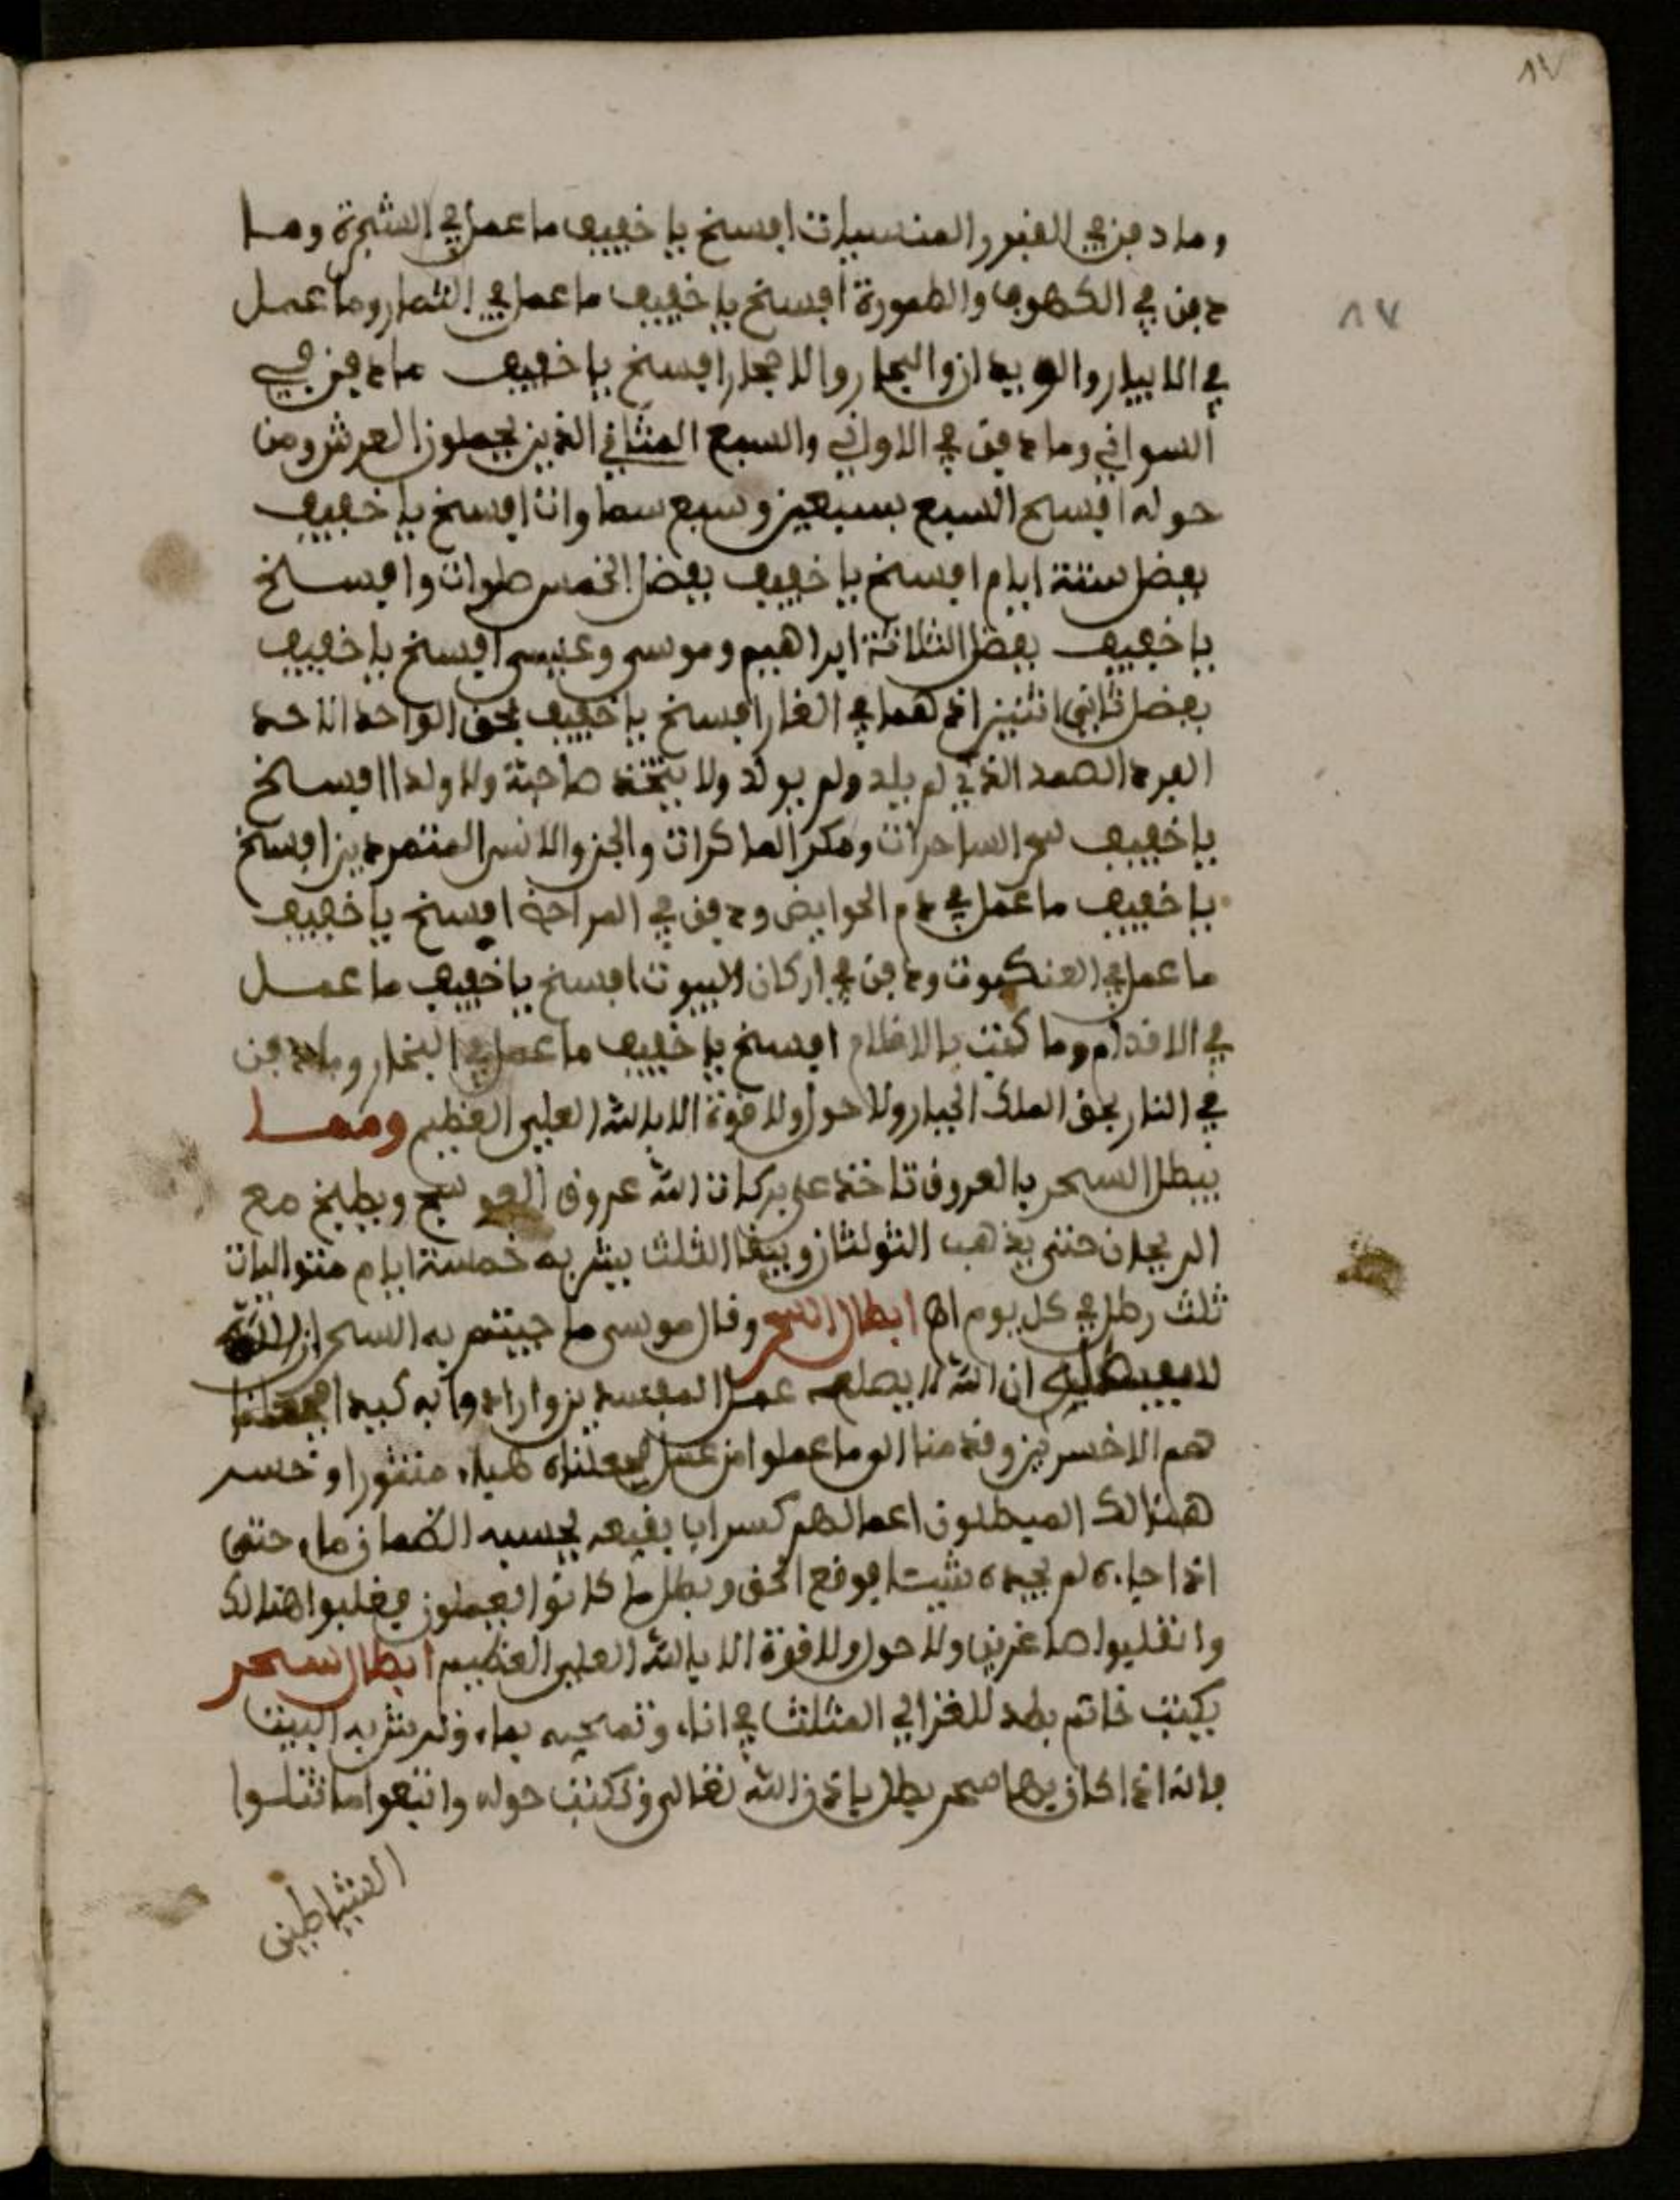 ٨٧
وما دفن في القبور المنسيات افسخ يا خفيف ما عمل في الشجرة وما
دفن في الكهوف والطمورة افسخ يا خفيف ما عمل في الثمار وما عمل
٨٧
في الابيار والويدان والبحار والاحجار افسخ يا خفيف ما دفن في
السواقي وما دفن في الاواني والسبع المثاني الذين يحملون العرش ومن
حوله افسخ السبع بسبعين وسبع سماوات افسخ يا خفيف
بفضل ستة ايام افسخ يا خفيف بفضل الخمس صلوات وافسخ
يا خفيف بفضل الثلاثة ابراهيم وموسى وعيسى افسخ يا خفيف
بفضل ثاني اثنين اذ هما في الغار افسخ يا خفيف بحق الواحد الاحد
الفرد الصمد الذي لم يلد ولم يولد ولا يتخذ صاحبة ولا ولدا افسخ
يا خفيف سحر الساحرات ومكر الماكرات والجن والانس المتمردين افسخ
يا خفيف ما عمل في دم الحوايض ودفن في المراحة افسخ يا خفيف
ما عمل في العنكبوت ودفن في اركان البيوت افسخ يا خفيف ما عمل
في الاقدام وما كتب بالاقلام افسخ يا خفيف ما عمل في البخار وما دفن
في النار بحق الملك الجبار ولا حول ولا قوة الا بالله العلي العظيم ومما
يبطل السحر بالعروق تاخذ على بركات الله عروق العوسج ويطبخ مع
الريحان حتى يذهب الثولثان ويبقا الثلث يشربه خمسة ايام متواليات
ثلث رطل في كل يوم اه ابطال السحر وقال موسى ما جيتم به السحر ان الله
سيبطله ان الله لا يصلح عمل المفسدين وارادوا به كيدا فجعلنا
هم الاخسرين وقدمنا الى ما عملوا من عمل فجعلناه هباء منثورا وخسر
هنالك المبطلون اعمالهم كسراب بقيعة يحسبه الظمان ماء حتى
اذا جاءه لم يجده شيئا فوقع الحق وبطل ما كانوا يعملون فغلبوا هنالك
وانقلبوا صاغرين ولا حول ولا قوة الا بالله العلي العظيم ابطال سحر
يكتب خاتم بطد للغزالي المثلث في اناء وتمحيه بماء وترش به البيت
فانه اذا كان بها سحر بطل باذن الله تعالى وتكتب حوله واتبعوا ما تتلوا
الشياطين